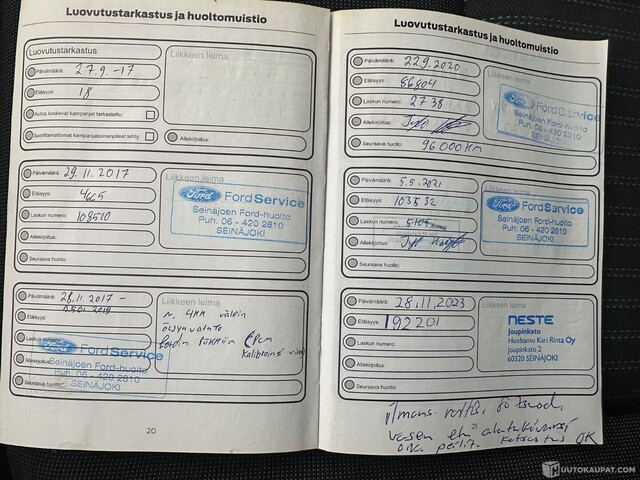 Luovutustarkastus ja huoltomuistio
Luovutustarkastus
Päivämäärä: 27.9.-17
Etäisyys: 18
Autoa koskevat kampanjat tarkastettu:
Suorittamattomat kampanjatoimenpiteet tehty:
Liikkeen leima
Allekirjoitus:
Päivämäärä: 29.11.2017
Etäisyys: 4665
Laskun numero: 108510
Allekirjoitus:
Seuraava huolto:
Liikkeen leima
Ford FordService
Seinäjoen Ford-huolto
Puh. 06 - 420 2810
SEINÄJOKI
Päivämäärä: 28.11.2017 -
Etäisyys:
Allekirjoitus:
Seuraava huolto:
Liikkeen leima
n. 4KK välein
kalibroinsi
Ford FordService
Seinäjoen Ford-huolto
Puh. 06 - 420 2810
SEINÄJOKI
20
Luovutustarkastus ja huoltomuistio
Päivämäärä: 22.9.2020
Etäisyys: 86804
Laskun numero: 2738
Allekirjoitus:
Seuraava huolto: 96000 km
Liikkeen leima
Ford FordService
Seinäjoen Ford-huolto
Puh. 06 - 420 2810
SEINÄJOKI
Päivämäärä: 5.5.2021
Etäisyys: 103532
Laskun numero: 5105
Allekirjoitus:
Seuraava huolto:
Liikkeen leima
Ford FordService
Seinäjoen Ford-huolto
Puh. 06 - 420 2810
SEINÄJOKI
Päivämäärä: 28.11.2023
Etäisyys: 192201
Laskun numero:
Allekirjoitus:
Seuraava huolto:
Liikkeen leima
NESTE
Joupinkatu
Huoltamo Kari Rinta Oy
Joupinkatu 2
60320 SEINÄJOKI
ilmans.
vasen etu
katsastus OK
21
HUUTOKAUPAT.COM